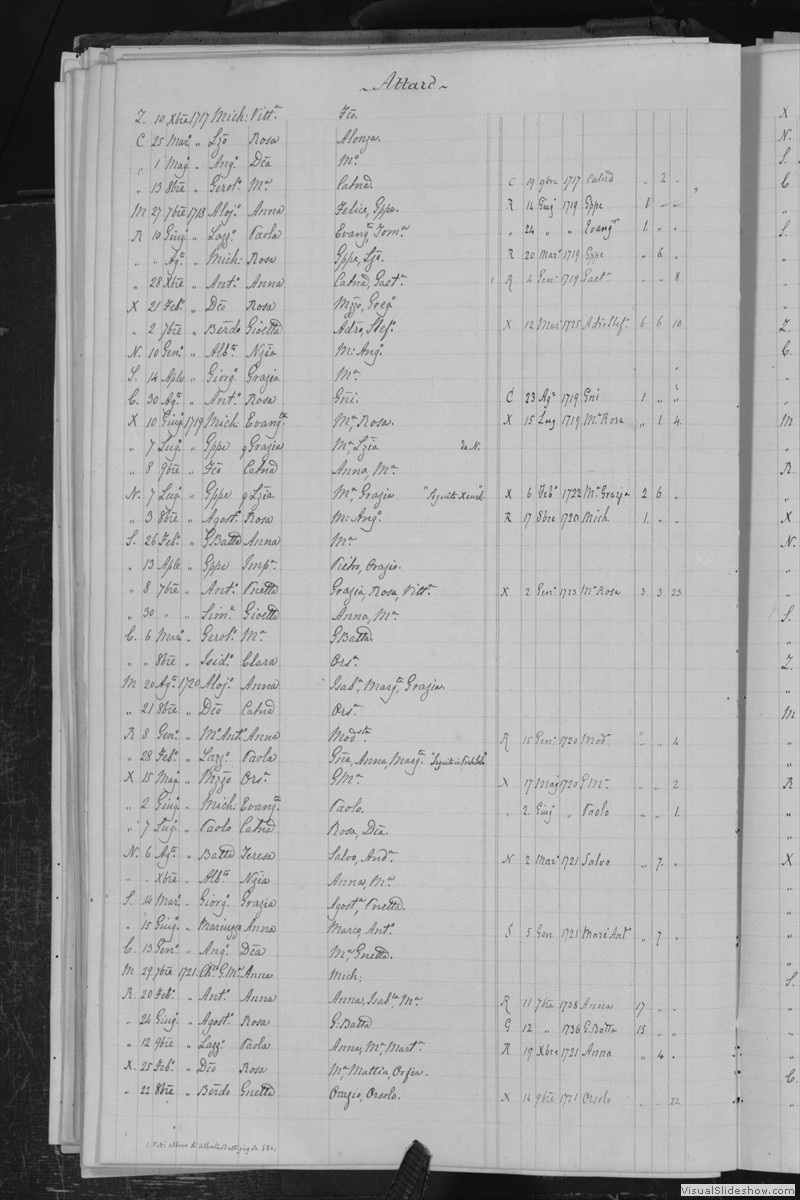 Attard
Z. 10 Xbre 1717 Mich: Vittª Fco.
C 25 Mar. „ Lzo Rosa Alonza.
„ 1 Mag. „ Angº Dca Mª
„ 13 8bre „ Gerolº Mª Catnd. C 19 9bre 1717 Catnd „ 2 „
M 27 7bre 1718 Alojº Anna Felice, Gppe. R 14 Giug 1719 Gppe 1 „ „
R 10 Giug „ Lazzº Paola Evangª, Tomª „ 24 „ „ Evangª 1. „ „
„ „ Agº „ Mich: Rosa Gppe, Lzo. R 20 Mar. 1719 Gppe „ 6 „
„ 28 Xbre „ Antº Anna Catnd, Gaetº 1 R 4 Genº 1719 Gaetº „ „ 8
X 21 Febº „ Dco Rosa Mzzo, Gregº
„ 2 7bre „ Berdo Gioetta Adrº, Stefº X 12 Mar. 1725 Adrº Stefº 6 6 10
N. 10 Genº „ Albª Nzia M: Angº
S. 14 Aple „ Giorgº Grazia Mª
C. 30 Agº „ Antº Rosa Gni. C 23 Agº 1719 Gni 1 „ „
X 10 Giug 1719 Mich: Evangª Mª Rosa. X 15 Lug 1719 Mª Rosa „ 1 4.
„ 7 Lug. „ Gppe q Grazia Mª, Lzia da N.
„ 8 9bre „ Fco Catnd Anna, Mª
N. 7 Lug. „ Gppe q Lzia Mª, Grazia X 6 Febº 1722 Mª Grazia 2 6 „
„ 3 8bre „ Agostº Rosa M: Angº R 17 8bre 1720 Mich. 1. „ „
S. 26 Febº „ GBatta Anna Mª
„ 13 Aple „ Gppe Impª Pietro, Orazio.
„ 8 7bre „ Antº Pnetta Grazia, Rosa, Vittª X 2 Genº 1723 Mª Rosa 3 3 23
„ 30 „ „ Simº Gioetta Anna, Mª
C. 6 Mar. „ Gerolº Mª GBatta.
„ „ 8bre „ Isidº Clara Orsª
M 20 Agº 1720 Alojº Anna Isabª, Margª, Grazia.
„ 21 8bre „ Dco Catnd Orsª
R 8 Genº „ Mº Antº Anna Modsta R 15 Genº 1720 Modª „ „ 4
„ 28 Febº „ Lazzº Paola Gna, Anna, Margª
X 15 Mag „ Mzzo Orsª GMª X 17 Mag 1720 GMª „ „ 2
„ 2 Giug „ Mich: Evangª Paolo. „ 2 Giug „ Paolo „ „ 1.
„ 7 Lug. „ Paolo Catnd Rosa, Dca.
N. 6 Agº „ Batta Teresa Salvo, Andª N 2 Mar. 1721 Salvo „ 7 „
„ „ Xbre „ Albª Nzia Anna, Mª
S. 14 Mar. „ Giorgº Grazia Agostª, Pnetta.
„ 15 Giug. „ Mariuzzo Anna Marco, Antº S 5 Gen 1721 Marc Antº „ 7 „
C. 13 Genº „ Angº Dca Mª, Gnetta.
M 29 7bre 1721 GMª Anna Mich:
R. 20 Febº „ Antº Anna Anna, Isabla, Mª R 11 7bre 1738 Anna 17 „ „
„ 24 Giug. „ Agostº Rosa G:Batta G 12 „ 1736 G.Batta 15 „ „
„ 12 9bre „ Lazzº Paola Anna, Mª, Martª R 19 Xbre 1721 Anna „ 4 „
X 25 Febº „ Dco Rosa Mª, Mattia, Orsia.
„ 22 8bre „ Berdo Gnetta Orazio, Orsola. X 14 9bre 1721 Orsola „ „ 22
VisualSlideshow.com